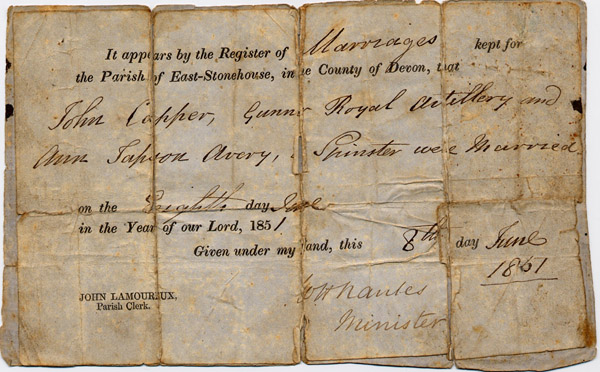 It appears by the Register of Marriages kept for
the Parish of East-Stonehouse, in the County of Devon, that
John Capper, Gunner Royal Artillery and
Ann Tapson Avery, a Spinster were Married
on the Eighth day June
in the Year of our Lord, 1851
Given under my hand, this 8th day June
1851
JOHN LAMOUREUX,
Parish Clerk.
Minister